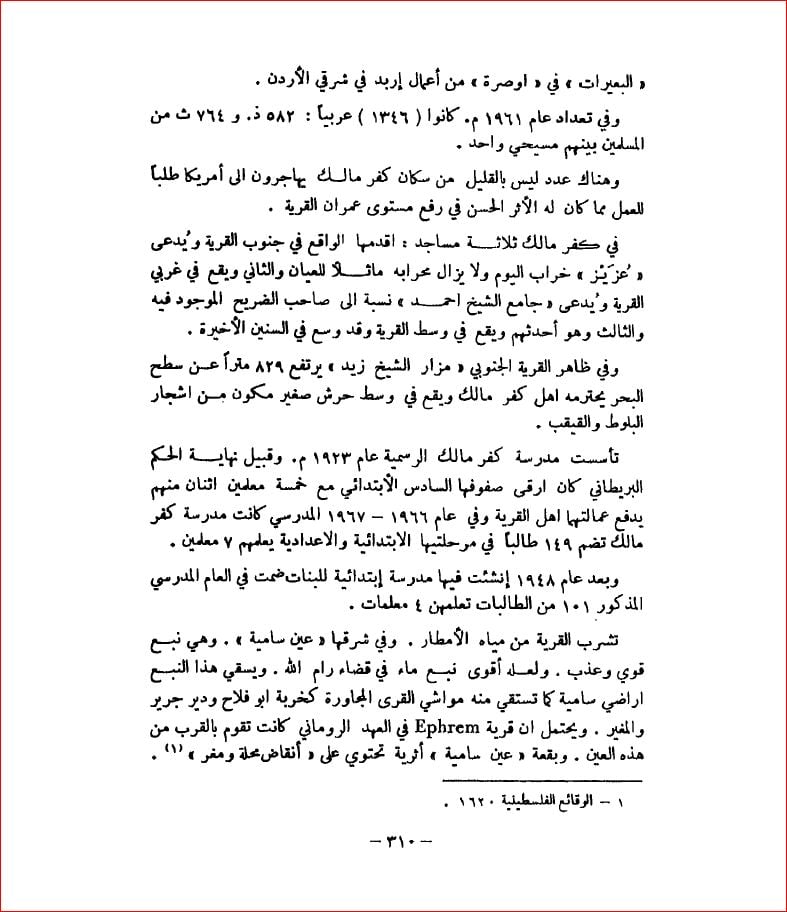 « البعيرات » في « اوصرة » من أعمال إربد في شرقي الأردن .
وفي تعداد عام ١٩٦١ م. كانوا ( ١٣٤٦ ) عربياً : ٥٨٢ ذ. و ٧٦٤ ث من
المسلمين بينهم مسيحي واحد .
وهناك عدد ليس بالقليل من سكان كفر مالك يهاجرون الى أمريكا طلباً
للعمل مما كان له الأثر الحسن في رفع مستوى عمران القرية .
في كفر مالك ثلاثة مساجد : اقدمها الواقع في جنوب القرية ويُدعى
« عُزَيْز » خراب اليوم ولا يزال محرابه ماثلاً للعيان والثاني ويقع في غربي
القرية ويُدعى « جامع الشيخ احمد » نسبة الى صاحب الضريح الموجود فيه
والثالث وهو أحدثهم ويقع في وسط القرية وقد وسع في السنين الأخيرة .
وفي ظاهر القرية الجنوبي « مزار الشيخ زيد » يرتفع ٨٢٩ متراً عن سطح
البحر يحترمه اهل كفر مالك ويقع في وسط حرش صغير مكون من اشجار
البلوط والقيقب .
تأسست مدرسة كفر مالك الرسمية عام ١٩٢٣ م. وقبيل نهاية الحكم
البريطاني كان ارقى صفوفها السادس الأبتدائي مع خمسة معلمين اثنان منهم
يدفع عمالتهما اهل القرية وفي عام ١٩٦٦ – ١٩٦٧ المدرسي كانت مدرسة كفر
مالك تضم ١٤٩ طالباً في مرحلتيها الابتدائية والاعدادية يعلمهم ٧ معلمين .
وبعد عام ١٩٤٨ إنشئت فيها مدرسة إبتدائية للبنات ضمت في العام المدرسي
المذكور ١٠١ من الطالبات تعلمهن ٤ معلمات .
تشرب القرية من مياه الأمطار . وفي شرقها « عين سامية » . وهي نبع
قوي وعذب . ولعله أقوى نبع ماء في قضاء رام الله . ويسقي هذا النبع
اراضي سامية كما تستقي منه مواشي القرى المجاورة كخربة ابو فلاح ودير جرير
والمغير . ويحتمل ان قرية Ephrem في العهد الروماني كانت تقوم بالقرب من
هذه العين . وبقعة « عين سامية » أثرية تحتوي على « أنقاض محلة ومغر » (١) .
١ – الوقائع الفلسطينية ١٦٢٠ .
– ٣١٠ –